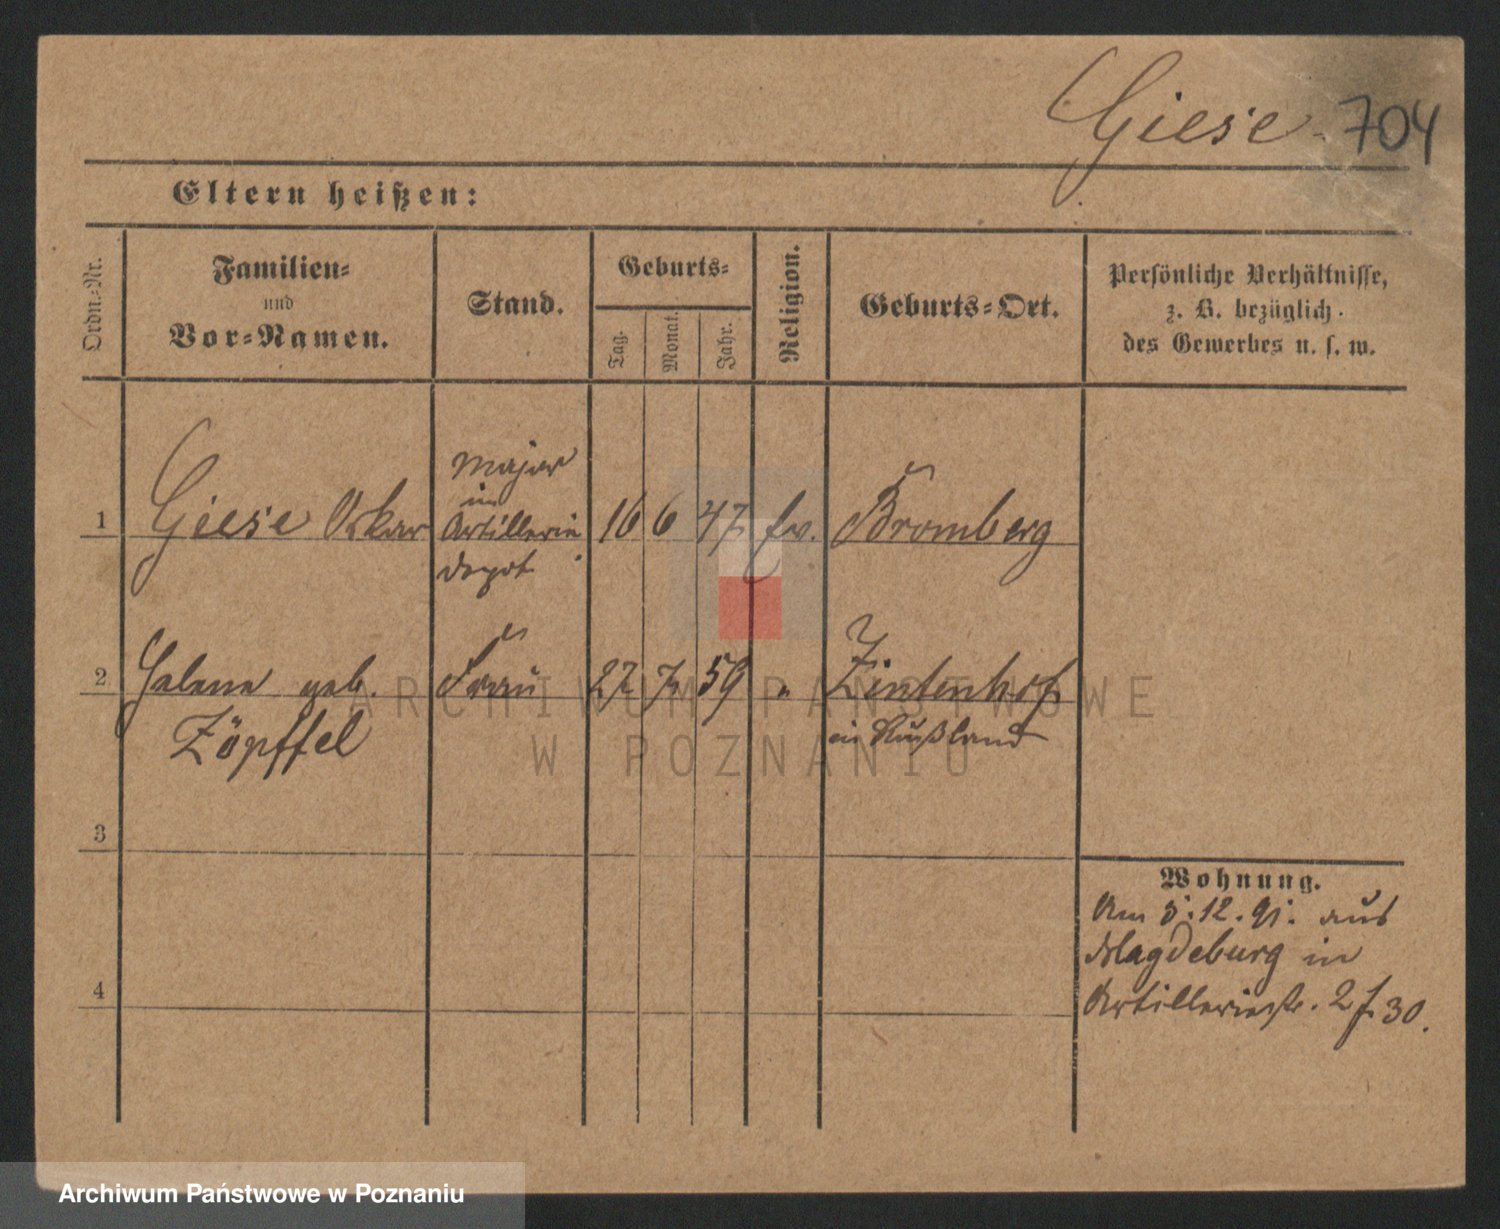 Giese 704
Eltern heißen:
Ordn.-Nr.
Familien-
und
Vor-Namen.
Stand.
Geburts-
Tag.
Monat.
Jahr.
Religion.
Geburts-Ort.
Persönliche Verhältnisse,
z. B. bezüglich
des Gewerbes u. s. w.
Major
im
1 Giese Oskar Artillerie 16 6 47 ev. Bromberg
depot
2 Helene geb. Frau 27 7 59 " Zintenhof
Zöpffel in Rußland
3
Wohnung.
Am 5.12.91. aus
Magdeburg in
4 Artilleriestr. 2 f. 30.
ARCHIWUM PAŃSTWOWE
W POZNANIU
Archiwum Państwowe w Poznaniu